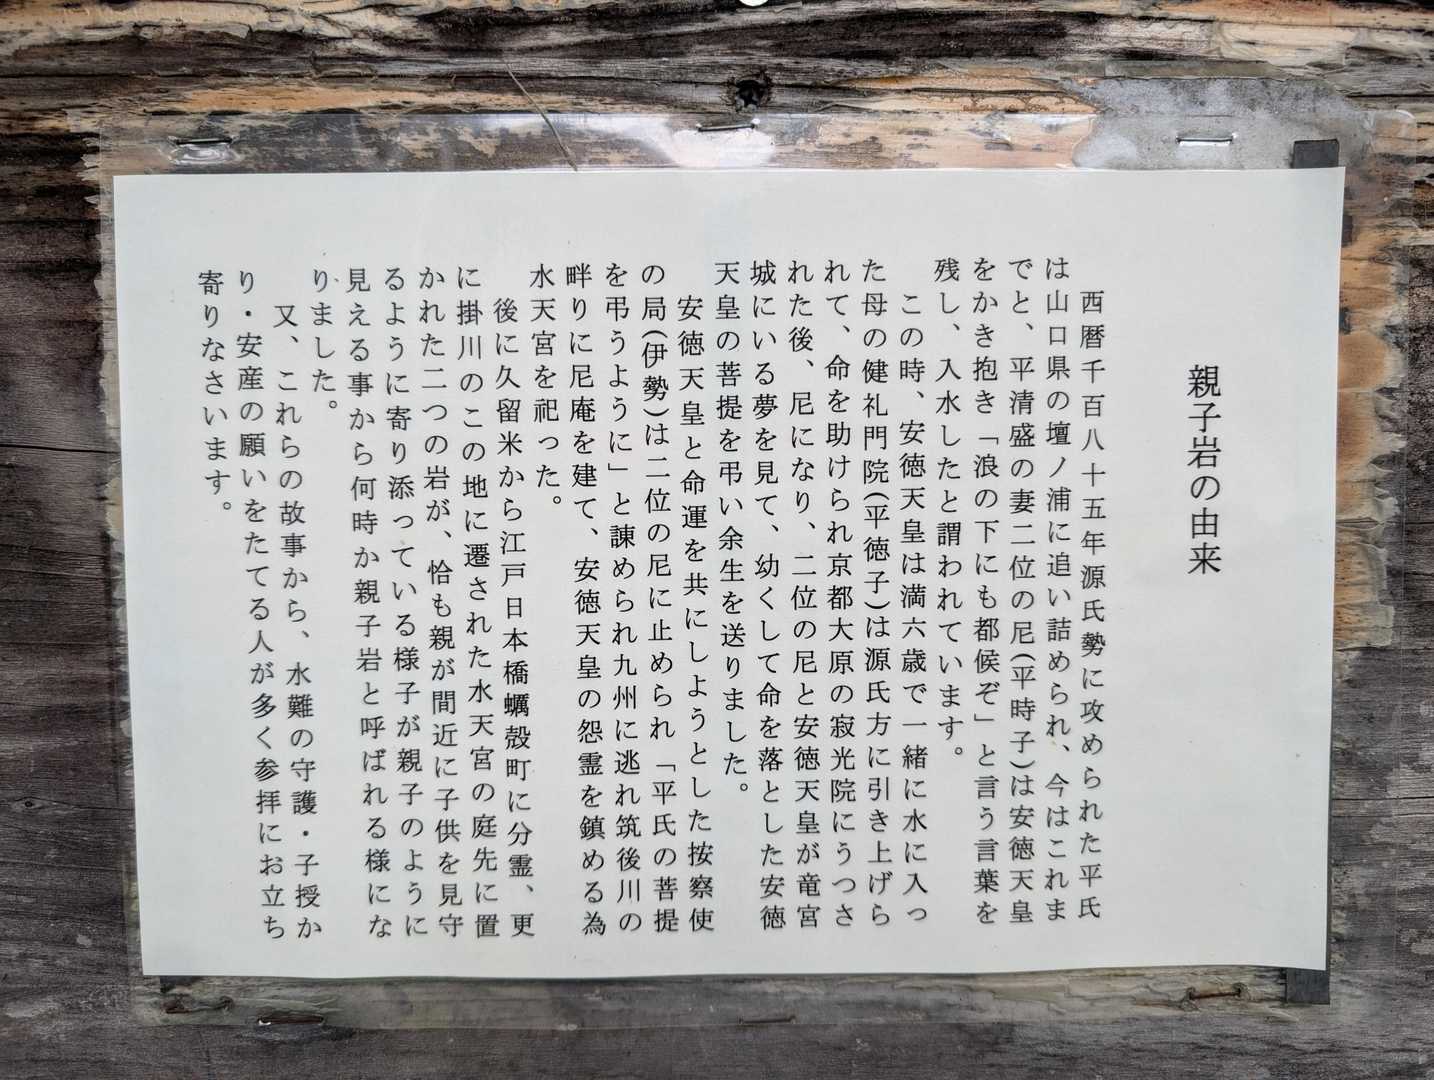 親子岩の由来
西暦千百八十五年源氏勢に攻められた平氏
は山口県の壇ノ浦に追い詰められ、今はこれま
でと、平清盛の妻二位の尼(平時子)は安徳天皇
をかき抱き「浪の下にも都候ぞ」と言う言葉を
残し、入水したと謂われています。
この時、安徳天皇は満六歳で一緒に水に入っ
た母の健礼門院(平徳子)は源氏方に引き上げら
れて、命を助けられ京都大原の寂光院にうつさ
れた後、尼になり、二位の尼と安徳天皇が竜宮
城にいる夢を見て、幼くして命を落とした安徳
天皇の菩提を弔い余生を送りました。
安徳天皇と命運を共にしようとした按察使
の局(伊勢)は二位の尼に止められ「平氏の菩提
を弔うように」と諌められ九州に逃れ筑後川の
畔りに尼庵を建て、安徳天皇の怨霊を鎮める為
水天宮を祀った。
後に久留米から江戸日本橋蠣殻町に分霊、更
に掛川のこの地に遷された水天宮の庭先に置
かれた二つの岩が、恰も親が間近に子供を見守
るように寄り添っている様子が親子のように
見える事から何時か親子岩と呼ばれる様にな
りました。
又、これらの故事から、水難の守護・子授か
り・安産の願いをたてる人が多く参拝にお立ち
寄りなさいます。